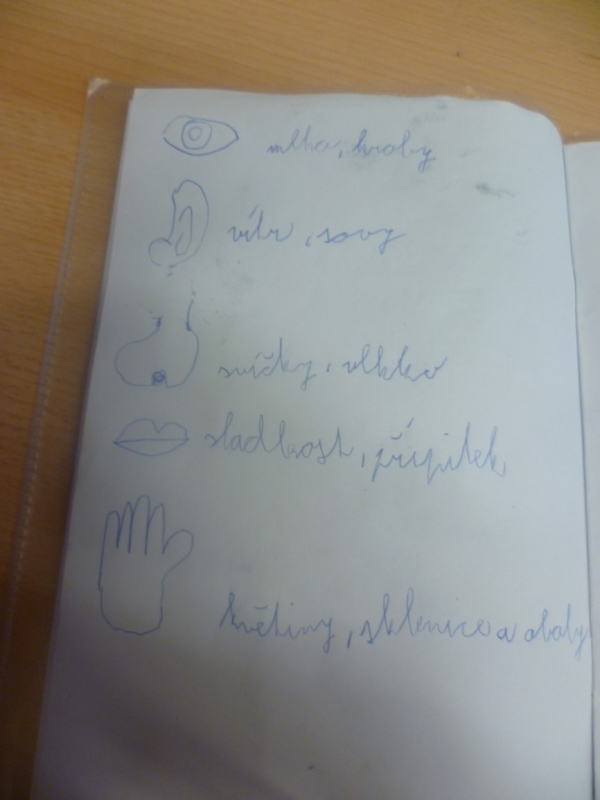 mlha, hroby
vítr, sovy
svíčky, vlhko
sladkost, přípitek
květiny, sklenice a obaly